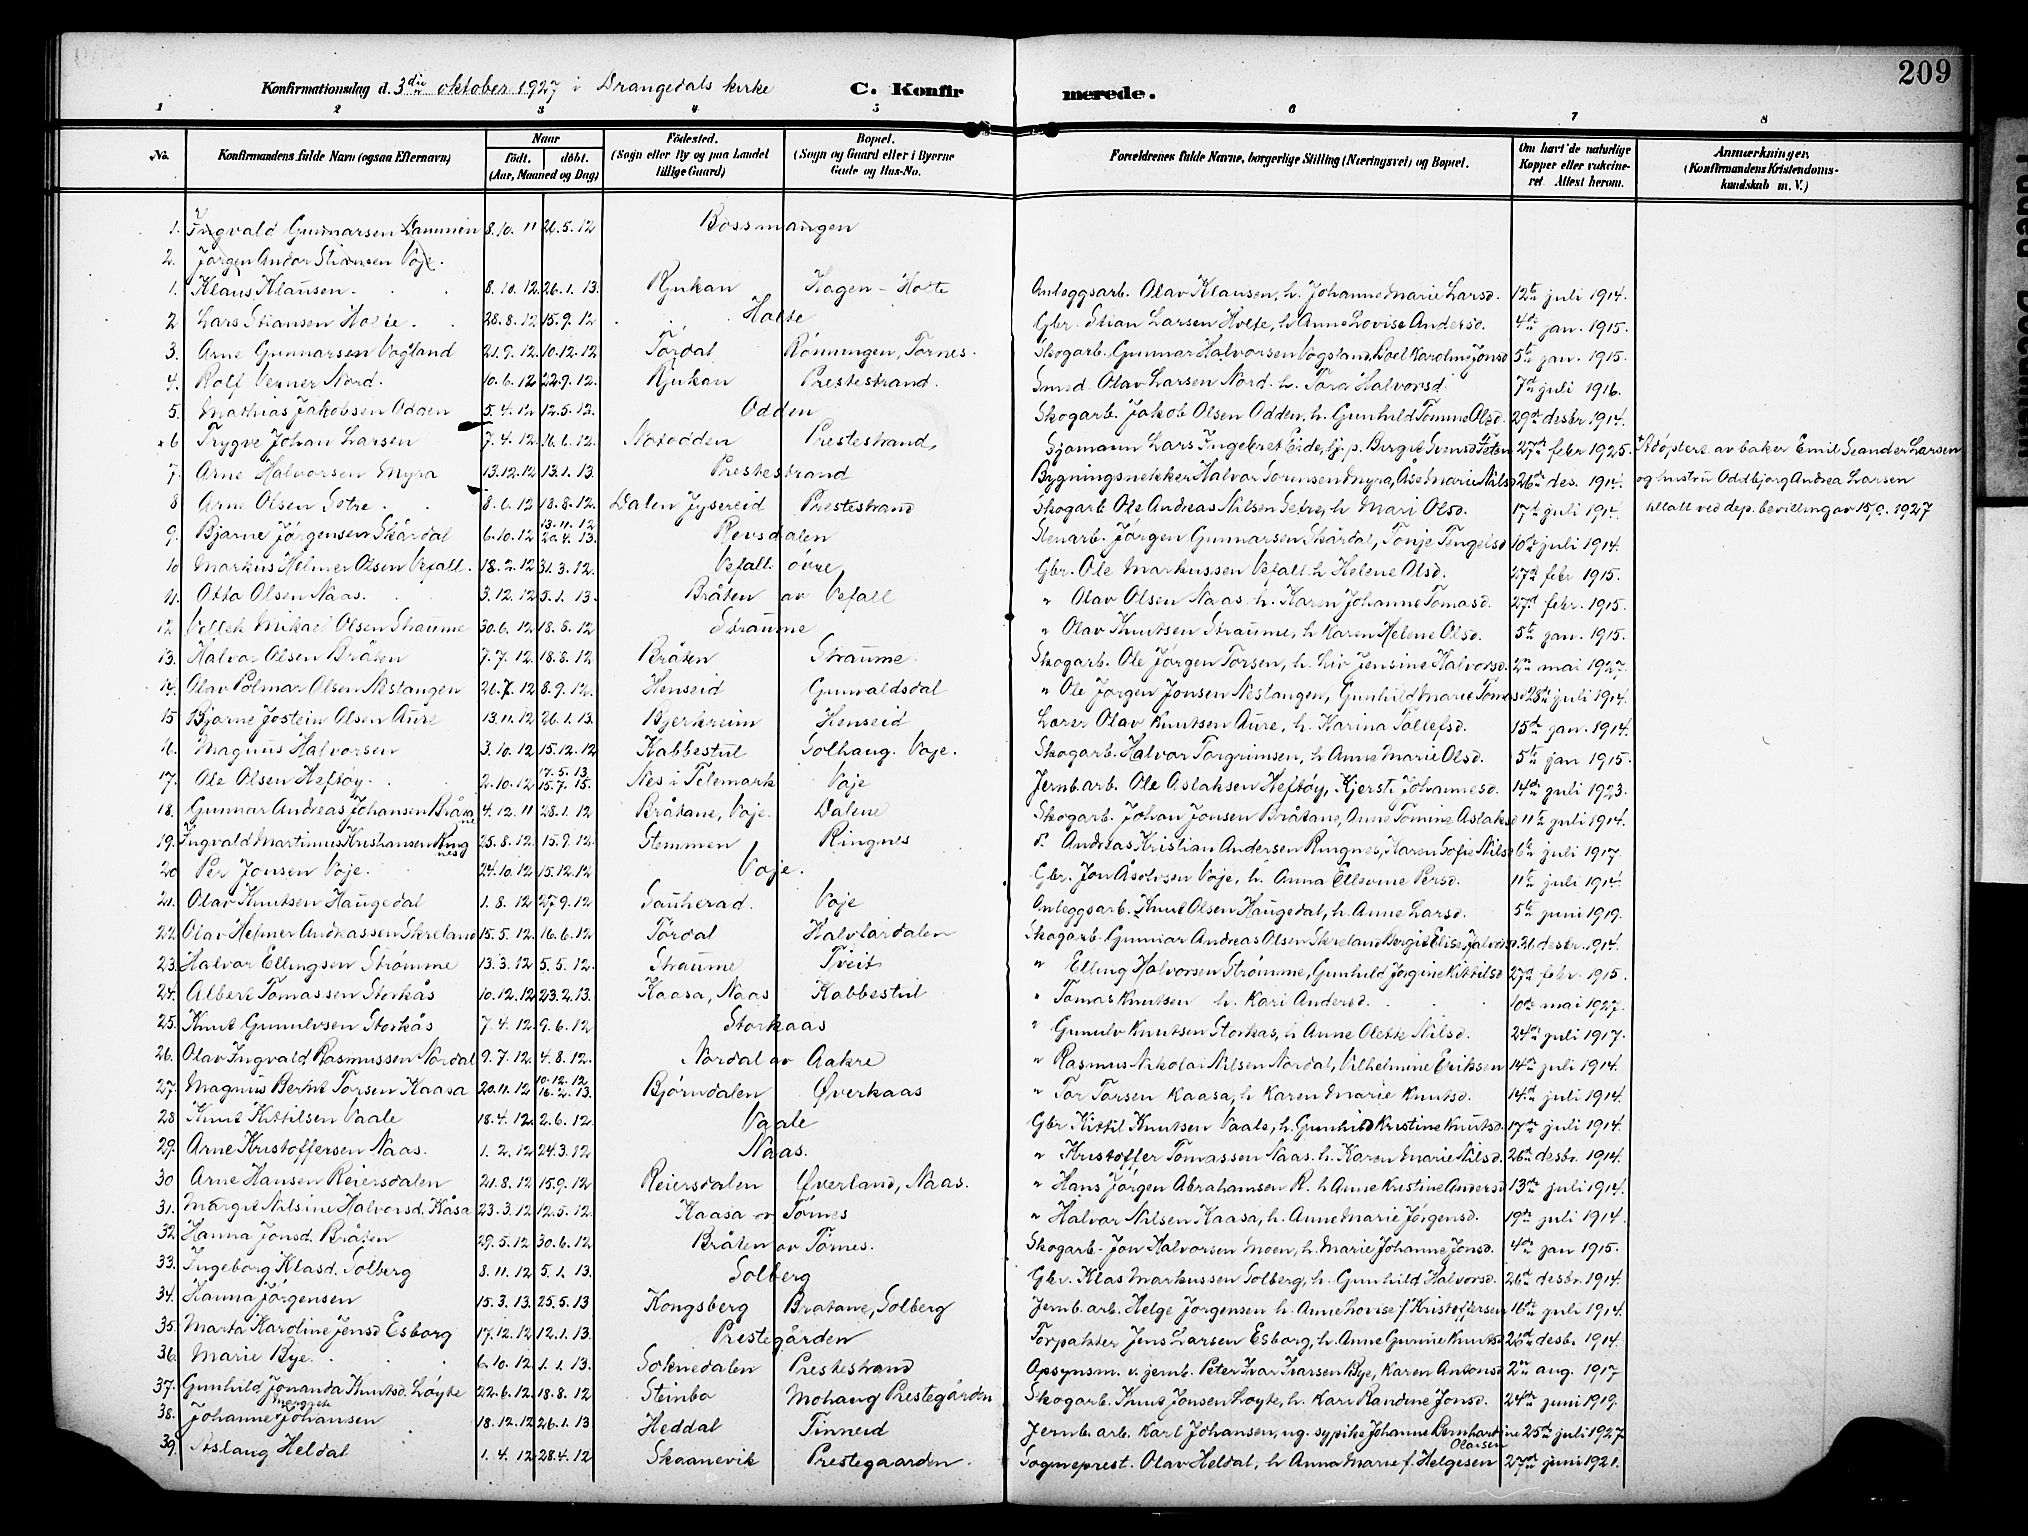 209
Konfirmationsdag d. 3die oktober 1927 i Drangedals kirke C. Konfirmerede.
1 2 3 4 5 6 7 8
No. Konfirmandens fulde Navn (ogsaa Efternavn) Naar født. døbt. (Aar, Maaned og Dag) Födested. (Sogn eller By og paa Landet tillige Gaard) Bopæl. (Sogn og Gaard eller i Byerne Gade og Hus-No. Forældrenes fulde Navne, borgerlige Stilling (Næringsvei) og Bopæl. Om havt de naturlige Kopper eller vakcineret Attest herom. Anmærkninger. (Konfirmandens Kristendomskundskab m. V.)
1. Ingvald Gunnarsen Dammen 8.10.11 26.5.12 Bossmangen
2. Jørgen Andor Stiansen Voje.
1. Klaus Klausen. 8.10.12 26.1.13. Rjukan Hagen - Holte Anleggsarb. Olav Klausen, h. Johanne Marie Larsd. 12te juli 1914.
2 Lars Stiansen Holte. 28.8.12 15.9.12 Holte Gbr. Stian Larsen Holte, h Anne Lovise Andersd. 4de jan. 1915.
3. Arne Gunnarsen Vogland 21.9.12 10.12.12 Tørdal Rønningen, Tørnes. Skogarb. Gunnar Halvorsen Vogsland, Boel Karoline Jonsd 5te jan. 1915.
4. Rolf Verner Nord. 10.6.12 22.9.12. Rjukan Prestestrand. Smed Olav Larsen Nord. h. Tora Halvorsd. 7de juli 1916.
5. Mathias Jakobsen Odden 5.4.12 12.5.12. Odden Skogarb. Jakob Olsen Odden, h. Gunhild Tomine Olsd. 29de desbr 1914.
x6 Trygve Johan Larsen 7.4.12 16.6.12 Notodden Prestestrand, Sjømann Lars Ingebret Eide, tj. p. Birgit Svensd 27de febr 1925. + Adoptert av baker Emil Leander Larsen
7. Arne Halvorsen Myra 13.12.12 13.1.13. Prestestrand Bygningsnekker Halvor Sørensen Myra, Åse Marie Nilsd 26de des. 1914. og hustru Oddbjørg Andrea Larsen
8 Arne Olsen Setre. 8.6.12 18.8.12. Dalen Prestestrand Skogarb Ole Andreas Nilsen Setre, h Mari Olsd. 17de juli 1914. tillatt ved dep. bevilling av 15.9.1927
9. Bjarne Jørgensen Skårdal 6.10.12 13.11.12 20.4.13. Revsdalen Stenarb. Jørgen Gunnarsen Skårdal, Tonje Tengelsd 10de juli 1914.
10 Markus Helmer Olsen Vefall. 18.2.12 31.3.12. Vefall øvre Gbr. Ole Markussen Vefall. h Helene Olsd. 27de febr 1915.
11. Otto Olsen Naas. 3.12.12 5.1.13. Bråten av Vefall " Olav Olsen Naas. h. Karen Johanne Tomasd. 27de febr. 1915.
12 Vetleh Mikael Olsen Straume 30.6.12 18.8.12 Straume " Olav Knutsen Straume, h Karen Helene Olsd. 5te jan. 1915.
13. Halvor Olsen Bråten 7.7.12 18.8.12 Bråten Straume. Skogarb. Ole Jørgen Torsen, h. Liv Jensine Halvorsd. 2en mai 1927.
14. Olav Polmar Olsen Nestangen 26.7.12 8.9.12. Henseid Gunvaldsdal " Ole Jørgen Jonsen Nestangen, Gunhild Marie Tomesd 28de juli 1914.
15 Bjarne Jostein Olsen Aure 13.11.12 26.1.13. Bjerkreim Henseid Lærer Olav Knutsen Aure, h. Karina Tollefsd. 15de jan. 1914.
16. Magnus Halvorsen 3.10.12 15.12.12 Kabbestul Solhaug. Voje. Skogarb. Halvor Torgrimsen, h Anne Marie Olsd. 5te jan 1915.
17. Ole Olsen Heftøy. 2.10.12 17.5.13 15.7.15. Nes i Telemark Voje Jernbarb. Ole Aslaksen Heftøy, Kjersti Johannesd. 14de juli 1923.
18. Gunnar Andreas Johansen Bråtane 4.12.11 28.1.12 Bråtane, Voje. Dalene Skogarb. Johan Jonsen Bråtane, Anne Tomine Aslaksd 11te juli 1914.
19. Ingvald Martinius Kristiansen Ringnes 25.8.12 15.9.12. Stemmen Ringnes d. Andreas Kristian Andersen Ringnes, Karen Sofie Nilsd 6te juli 1917.
20 Per Jonsen Voje. 24.10.12 15.12.12 Voje. Gbr. Jon Asolvsen Voje, h. Anna Ellevine Persd. 11te juli 1914.
21. Olav Knutsen Haugedal 1.8.12 27.9.12 Sauherad. Voje Anleggsarb. Knut Olsen Haugedal, h. Anne Larsd. 5te juni 1919.
22. Olav Helmer Andreassen Skreland 15.5.12 16.6.12 Tørdal Halvfardalen Skogarb. Gunnar Andreas Olsen Skreland Bergit Elise Halvorsd. 26 desbr. 1914.
23. Halvor Ellingsen Strømme 13.3.12 5.5.12. Straume Tveit " Elling Halvorsen Strømme, Gunhild Jørgine Kittilsd 27de febr. 1915.
24. Albert Tomassen Storkås 10.12.12 23.2.13. Kaasa, Naas Kabbestul " Tomas Knutsen h. Kari Andersd. 10de mai 1927.
25. Knut Gunulvsen Storkås 7.4.12 9.6.12 Storkaas " Gunulv Knutsen Storkas, h Anne Olette Nilsd. 24de juli 1917.
26. Olav Ingvald Rasmussen Nordal 9.7.12 4.8.12. Nordal av Aakre " Rasmus Nikolai Nilsen Nordal, Vilhelmine Eriksen 14de juli 1914.
27. Magnus Bernt Torsen Kaasa 20.11.12 10.12.12 16.2.13 Bjørndalen Øverkaas " Tor Torsen Kaasa, h Karen Marie Knutsd. 14de juli 1914.
28 Knut Kittilsen Vaale 18.4.12 2.6.12. Vaale Gbr Kittil Knutsen Vaale, h. Gunhild Kristine Knutsd. 17de juli 1914.
29. Arne Kristoffersen Naas. 1.2.12 24.3.12 Naas. " Kristoffer Tomassen Naas. h. Karen Marie Nilsd. 26de desbr. 1914.
30 Arne Hansen Reiersdalen 21.8.12 15.9.12 Reiersdalen Øverland, Naas. " Hans Jørgen Abrahamsen R. h Anne Kristine Andersd 13de juli 1914.
31. Margit Nilsine Halvorsd. Kåsa 23.3.12 12.5.12 Kaasa av Tørnes " Halvor Nilsen Kaasa, h. Anne Marie Jørgensd. 19de juli 1914.
32. Hanna Jonsd. Bråten 29.5.12 30.6.12 Bråten av Tørnes. Skogarb. Jon Halvorsen Moen, h. Marie Johanne Jonsd. 4de jan 1915.
33. Ingeborg Klasd. Solberg 8.11.12 5.1.13. Solberg Gbr. Klas Markussen Solberg, h. Gunhild Halvorsd. 26de desbr. 1914.
34. Hanna Jørgensen 15.3.13. 25.5.13 Kongsberg Bratane, Solberg Jernb. arb. Helge Jørgensen h. Anne Lovise f Kristoffersen 16de juli 1914.
35. Marta Karoline Jensd Esborg 17.12.12 12.1.13. Prestegården Forpakter Jens Larsen Esborg, h. Anne Gurine Knutsd 28de desbr. 1914.
36. Marie Bye. 6.10.12 1.1.13. Soknedalen Prestestrand Opsynsm. v. jernb. Peter Ivar Ivarsen Bye, Karen Antonsd 2en aug. 1917
37. Gunhild Jonanda Knutsd. Løyte 22.6.12 18.8.12 Steinbo Mohaug Prestegården Skogarb. Knut Jonsen Løyte, h. Kari Randine Jonsd. 24de juni 1919.
38. Johanne Margrete Johansen 18.12.12 26.1.13 Heddal Tinneid Jernb. arb. Karl Johansen, ug. sypike Johanne Bernhardine Olausen 25de juli 1927
39. Aslaug Heldal 1.4.12 28.4.12 Skaanevik Prestegaarden. Sogneprest. Olav Heldal, h Anna Marie f. Helgesen 27de juni 1921.